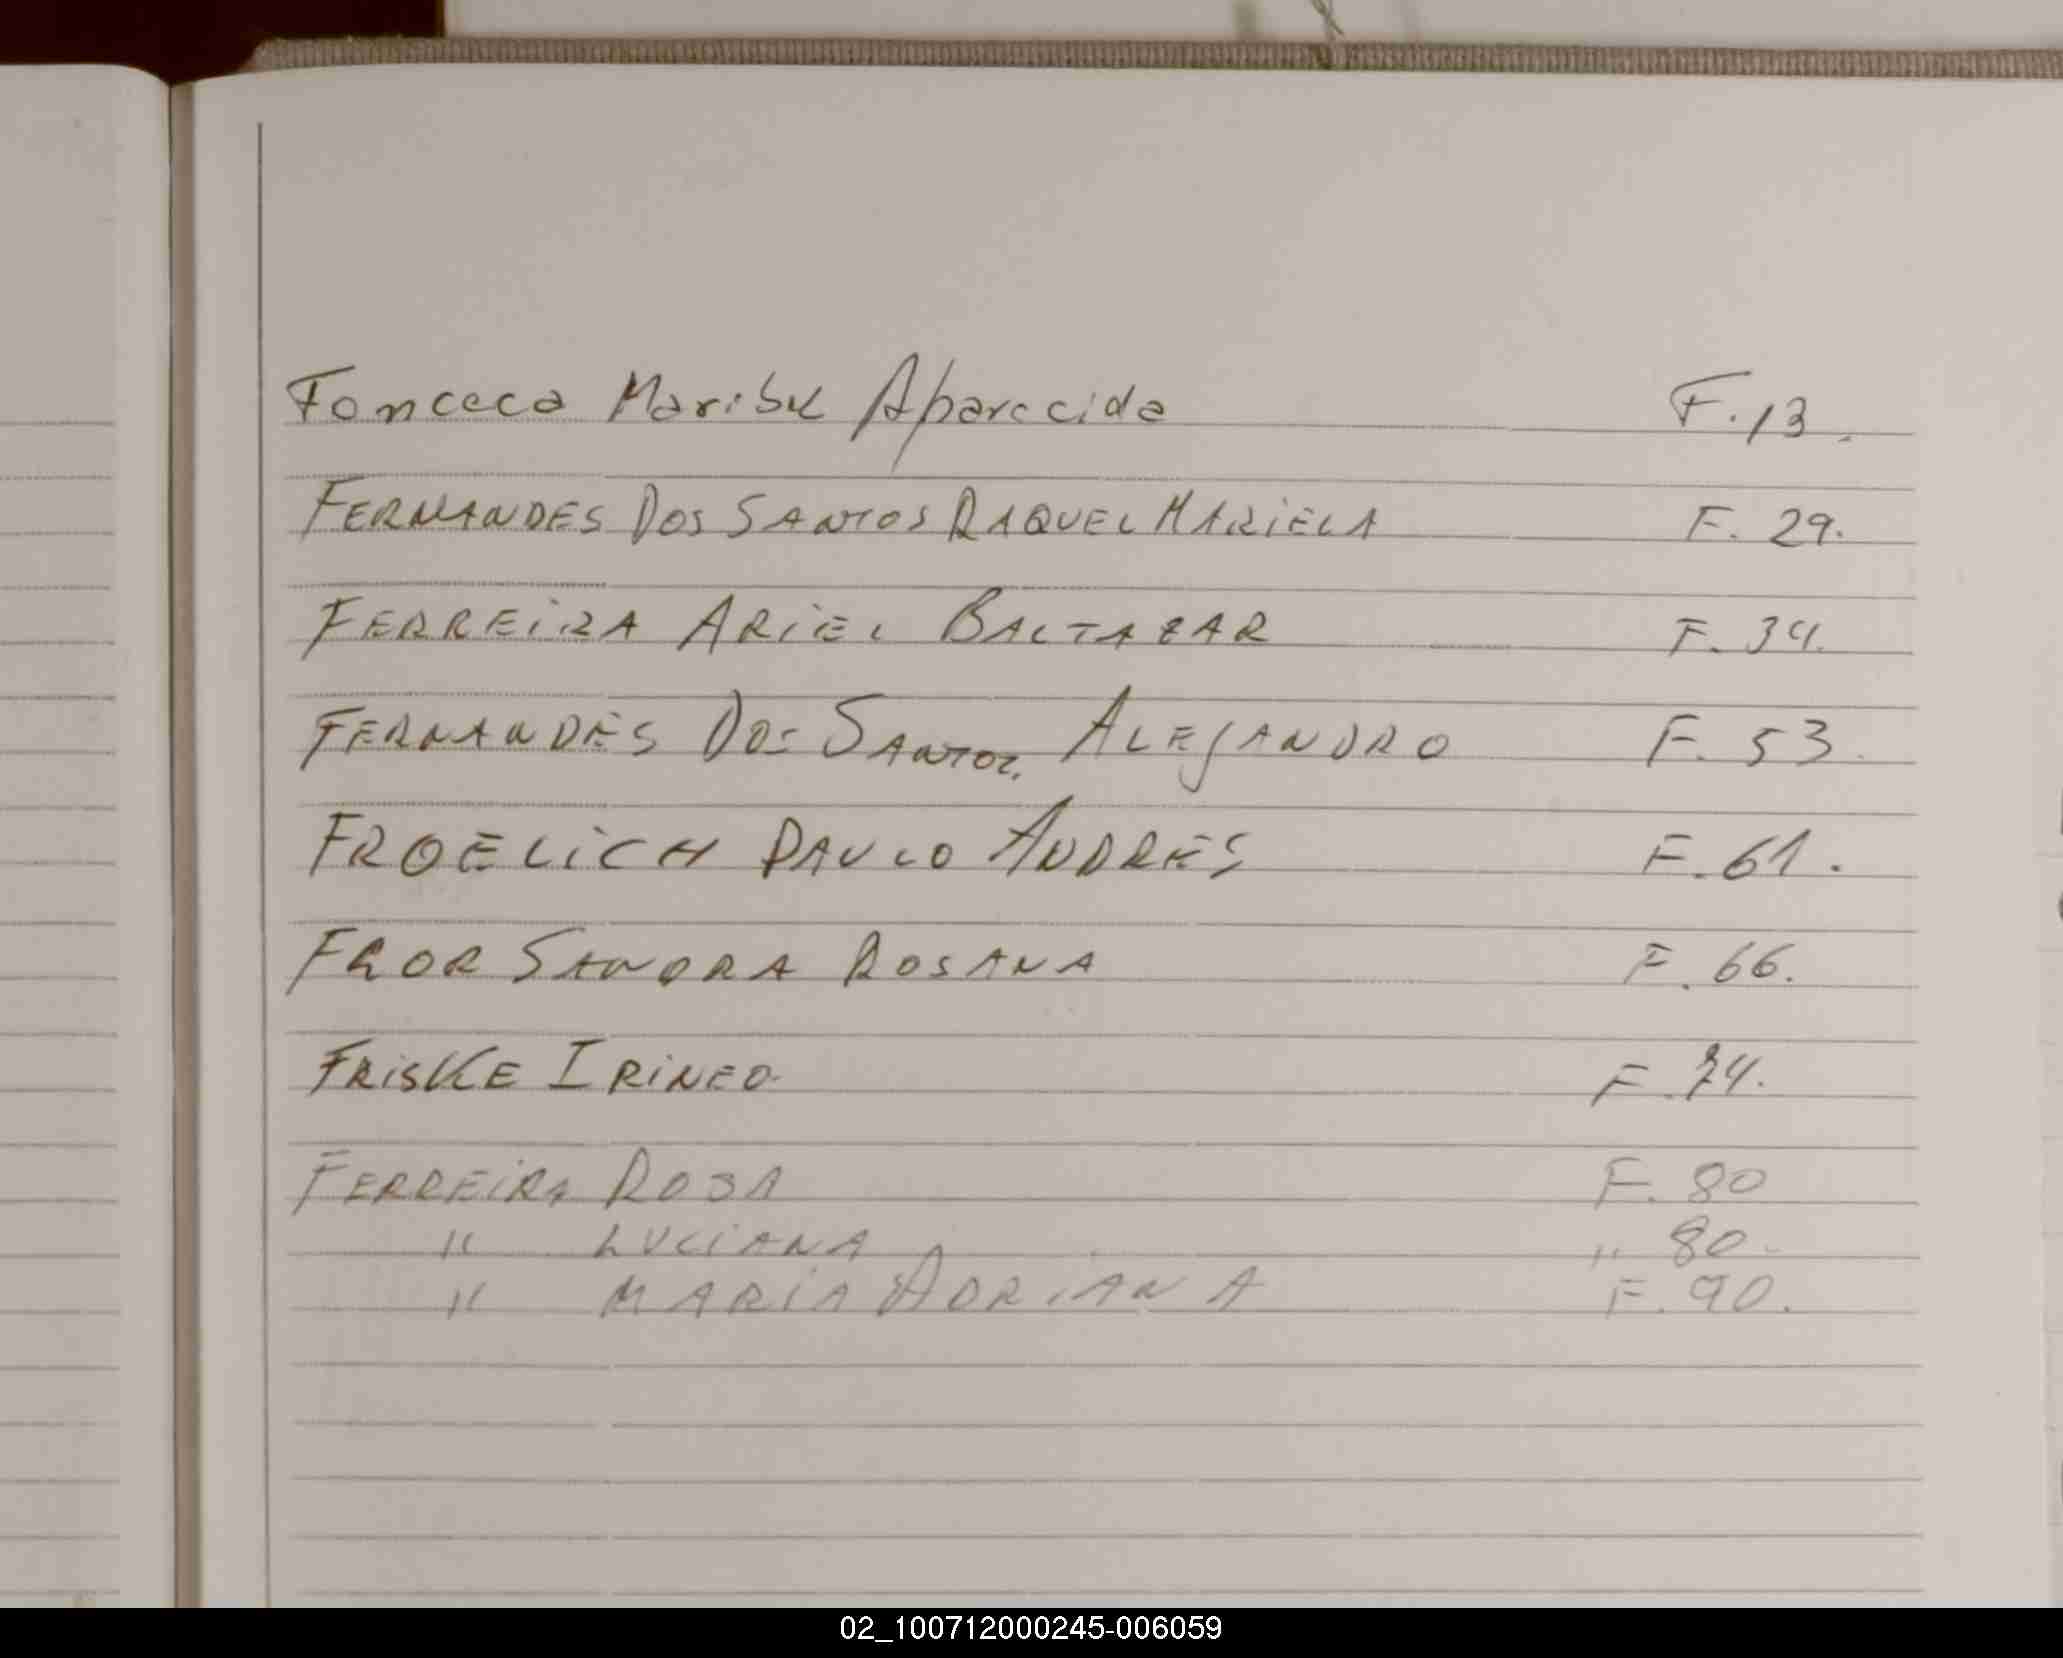 Fonceca Maribel Aparecida F. 13.
FERNANDES DOS SANTOS RAQUEL MARIELA F. 29.
FERREIRA ARIEL BALTAZAR F. 34.
FERNANDES DOS SANTOS ALEJANDRO F. 53.
FROELICH PAULO ANDRES F. 61.
FROR SANDRA ROSANA F. 66.
FRISKE IRINEO. F. 74.
FERREIRA ROSA F. 80
" LUCIANA " 80.
" MARIA ADRIANA F. 90.
02_100712000245-006059